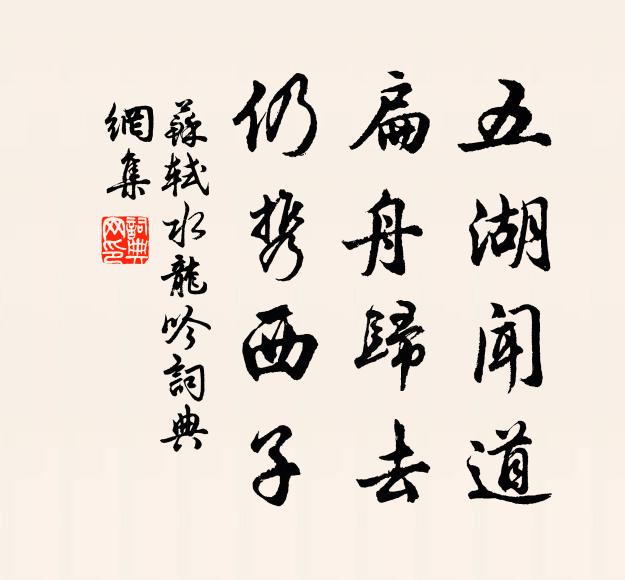 五湖聞道
扁舟歸去
仍携西子
蘇軾水龍吟詞典
網集
詞典
网印